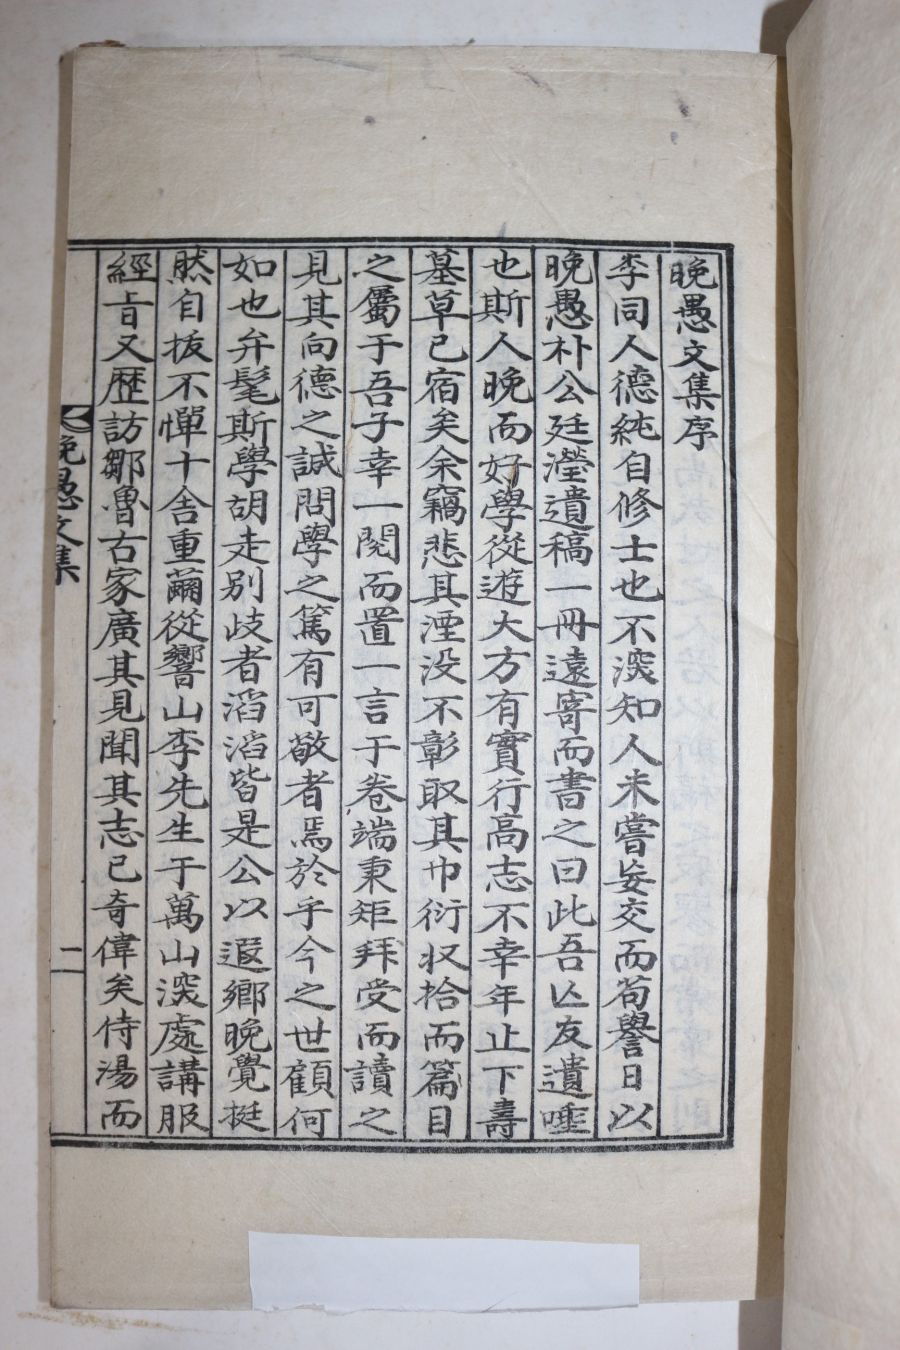 晚愚文集序
李同人德純自修士也不深知人未嘗妄交而苟譽日以
晚愚朴公廷瀅遺稿一冊遠寄而書之曰此吾亡友遺唾
也斯人晚而好學從遊大方有實行高志不幸年止下壽
墓草已宿矣余竊悲其湮没不彰取其巾衍收拾而篇目
之屬于吾子幸一閱而置一言于卷端秉矩拜受而讀之
見其向德之誠問學之篤有可敬者焉於乎今之世顧何
如也弁髦斯學胡走別歧者滔滔皆是公以遐鄉晚覺挺
然自拔不憚十舍重繭從響山李先生于萬山深處講服
經旨又歷訪鄒魯古家廣其見聞其志已奇偉矣侍湯而
晚愚文集